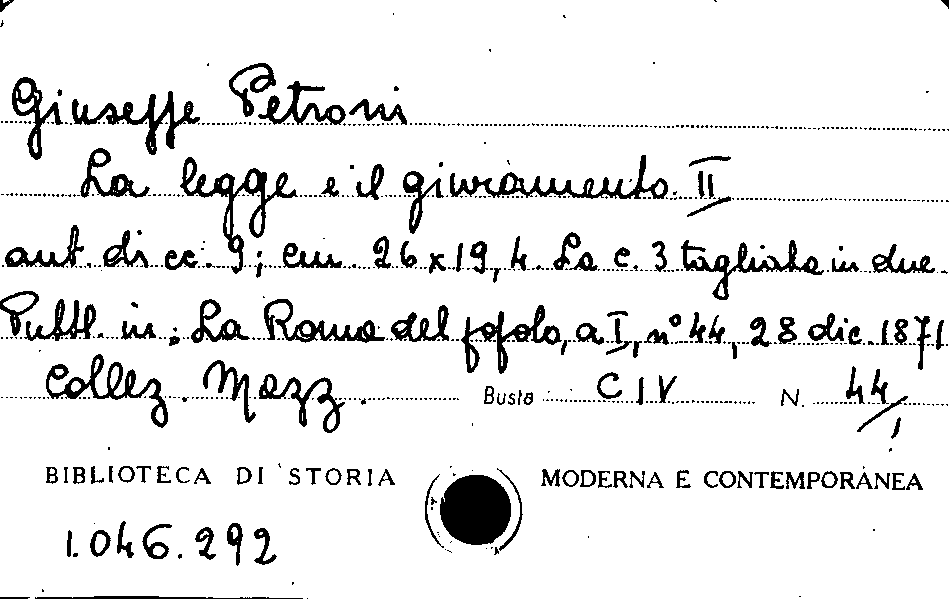 Giuseppe Petroni
La legge e il giuramento II
aut. di cc. 9; cm. 26x19,4. La c. 3 tagliata in due
Pubbl. in: La Roma del popolo, a I, n° 44, 28 dic. 1871
Collez. Mazz. Busta CIV N. 44/1
BIBLIOTECA DI STORIA MODERNA E CONTEMPORANEA
1.046.292